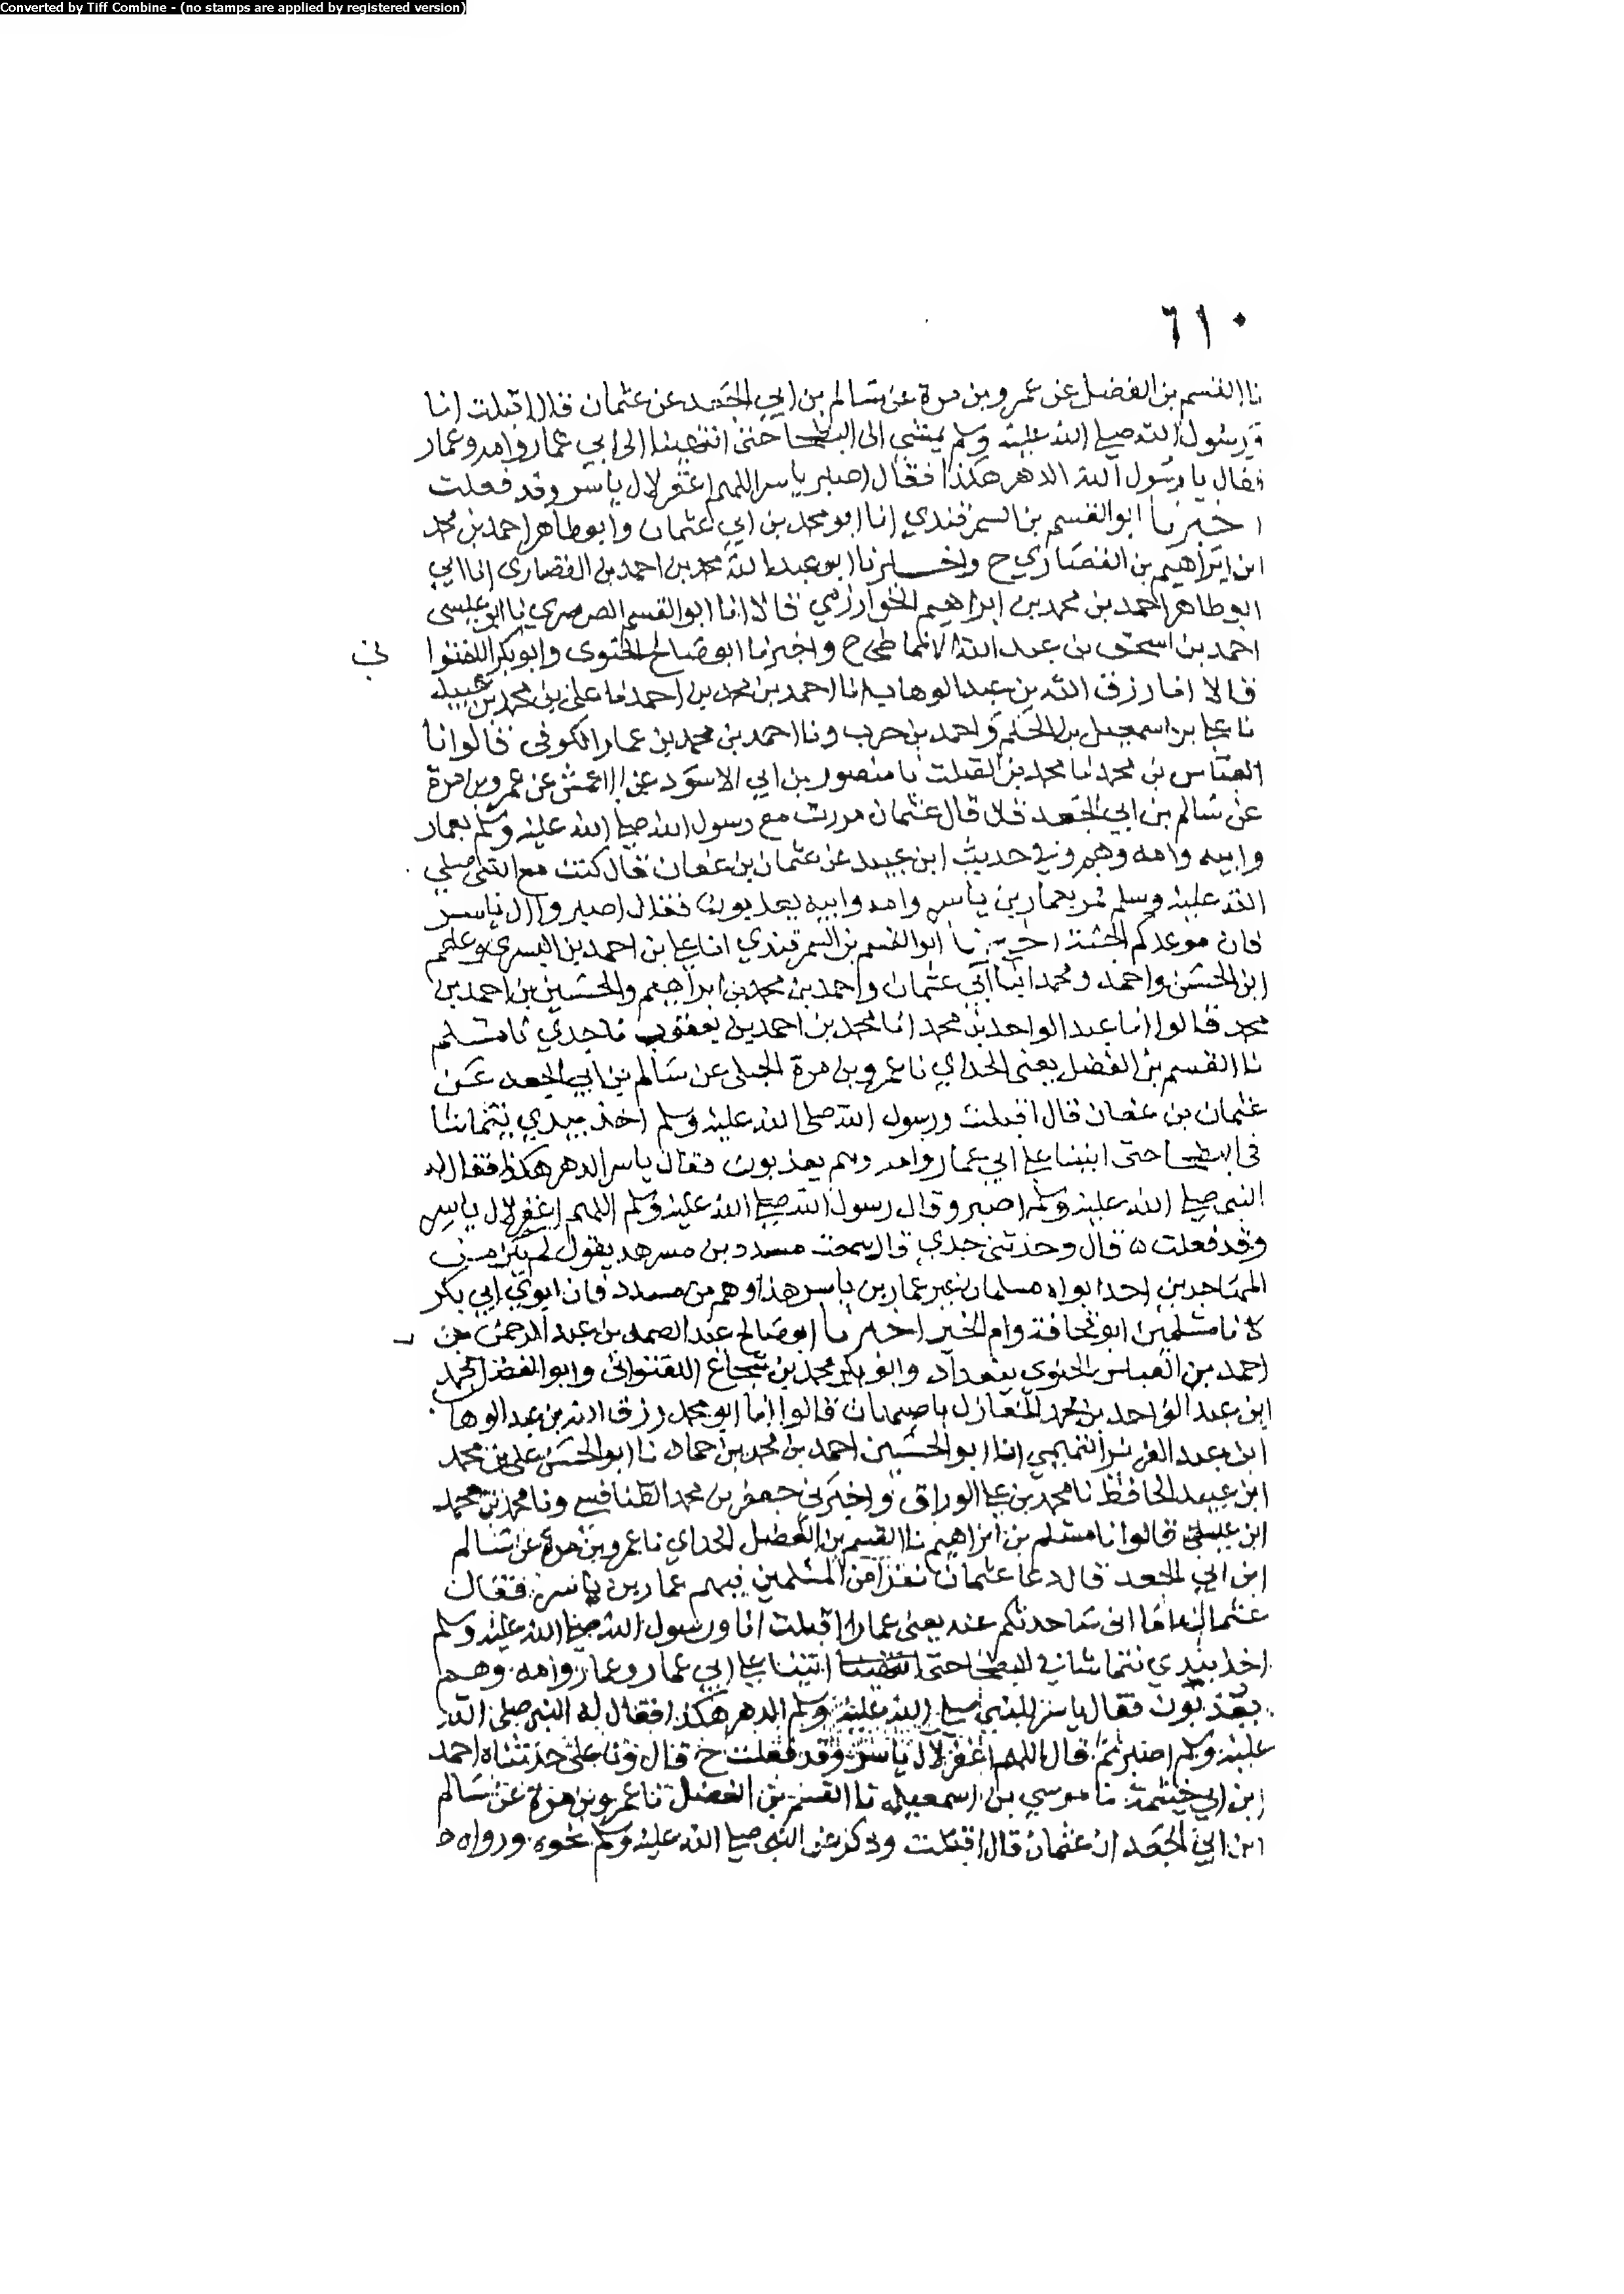 Converted by Tiff Combine - (no stamps are applied by registered version)
٦١٠
نا القسم بن الفضل عن عمرو بن مرة عن سالم بن ابي الجعد عن عثمان قال اقبلت انا
ورسول الله صلى الله عليه وسلم يمشي الى البطحا حتى انتهينا الى ابي عمار وامه وعمار
فقال يا رسول الله الدهر هكذا فقال اصبر ياسر اللهم اغفر لال ياسر وقد فعلت
اخبرنا ابو القسم بن السمرقندي انا ابو محمد بن ابي عثمان وابو طاهر احمد بن محمد
ابن ابراهيم بن القصاري ح واخبرنا ابو عبد الله محمد بن احمد بن القصاري انا ابي
ابو طاهر احمد بن محمد بن ابراهيم الخوارزمي قالا انا ابو القسم الصرصري نا ابو عيسى
احمد بن اسحق بن عبد الله الانماطي ح واخبرنا ابو صالح الحنوى وابو بكر اللفتوا
ني
قالا انا رزق الله بن عبد الوهاب انا احمد بن محمد بن احمد نا علي بن محمد بن عبيد
نا علي بن اسمعيل بن الحكم واحمد بن حرب ونا احمد بن محمد بن عمار الكوفي قالوا نا
العباس بن محمد نا محمد بن الصلت نا منصور بن ابي الاسود عن الاعمش عن عمرو بن مرة
عن سالم بن ابي الجعد قال قال عثمان مررت مع رسول الله صلى الله عليه وسلم بعمار
وابيه وامه وهم وفي حديث ابن عبيد عن عثمان بن عفان قال كنت مع النبي صلى
الله عليه وسلم فمر بعمار بن ياسر وامه وابيه يعذبون فقال اصبروا ال ياسر
فان موعدكم الجنة اخبرنا ابو القسم بن السمرقندي انا علي بن احمد بن البسري وعلي
ابن الحسن واحمد ومحمد ابنا ابي عثمان واحمد بن محمد بن ابراهيم والحسين بن احمد بن
محمد قالوا انا عبد الواحد بن محمد انا محمد بن احمد بن يعقوب نا جدي نا مسلم
نا القسم بن الفضل يعني الحداي نا عمرو بن مرة الجملى عن سالم بن ابي الجعد عن
عثمان بن عفان قال اقبلت ورسول الله صلى الله عليه وسلم اخذ بيدي نتماشا
في البطحا حتى اتينا على ابي عمار وامه وهم يعذبون فقال ياسر الدهر هكذا فقال له
النبي صلى الله عليه وسلم اصبر وقال رسول الله صلى الله عليه وسلم اللهم اغفر لال ياسر
وقد فعلت ٥ قال وحدثني جدي قال سمعت مسدد بن مسرهد يقول لم يكن من
المهاجرين احد ابواه مسلمان غير عمار بن ياسر هذا وهم من مسدد فان ابوي ابي بكر
كانا مسلمين ابو قحافة وام الخير اخبرنا ابو صالح عبد الصمد بن عبد الرحمن بن
احمد بن العباس الحنوي ببغداد وابو بكر محمد بن شجاع اللفتواني وابو الفضل محمد
ابن عبد الواحد بن محمد المغازلي باصبهان قالوا انا ابو محمد رزق الله بن عبد الوهاب
ابن عبد العزيز التميمي انا ابو الحسين احمد بن محمد بن حماد نا ابو الحسن علي بن محمد
ابن عبيد الحافظ نا محمد بن علي الوراق واخبرني جعفر بن محمد الطنافسي ونا محمد بن محمد
ابن عيسى قالوا نا مسلم بن ابراهيم نا القسم بن الفضل الحداي نا عمرو بن مرة عن سالم
ابن ابي الجعد قال دعا عثمان نفرا من المسلمين فيهم عمار بن ياسر فقال
عثمان اما اني ساحدثكم عنه يعني عمارا اقبلت انا ورسول الله صلى الله عليه وسلم
اخذ بيدي نتماشا في البطحا حتى اتينا على ابي عمار وعمار وامه وهم
يعذبون فقال ياسر للنبي صلى الله عليه وسلم الدهر هكذا فقال له النبي صلى الله
عليه وسلم اصبر ثم قال اللهم اغفر لال ياسر وقد فعلت ح قال ونا علي حدثناه احمد
ابن ابي خيثمة نا موسى بن اسمعيل نا القسم بن الفضل نا عمرو بن مرة عن سالم
ابن ابي الجعد ان عثمان قال اقبلت وذكر عن النبي صلى الله عليه وسلم نحوه ورواه